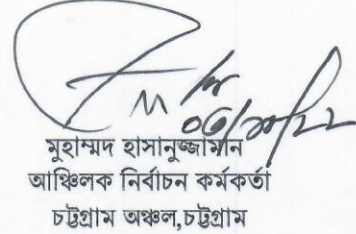 মুহাম্মদ হাসানুজ্জামান
আঞ্চিলক নির্বাচন কর্মকর্তা
চট্টগ্রাম অঞ্চল,চট্টগ্রাম